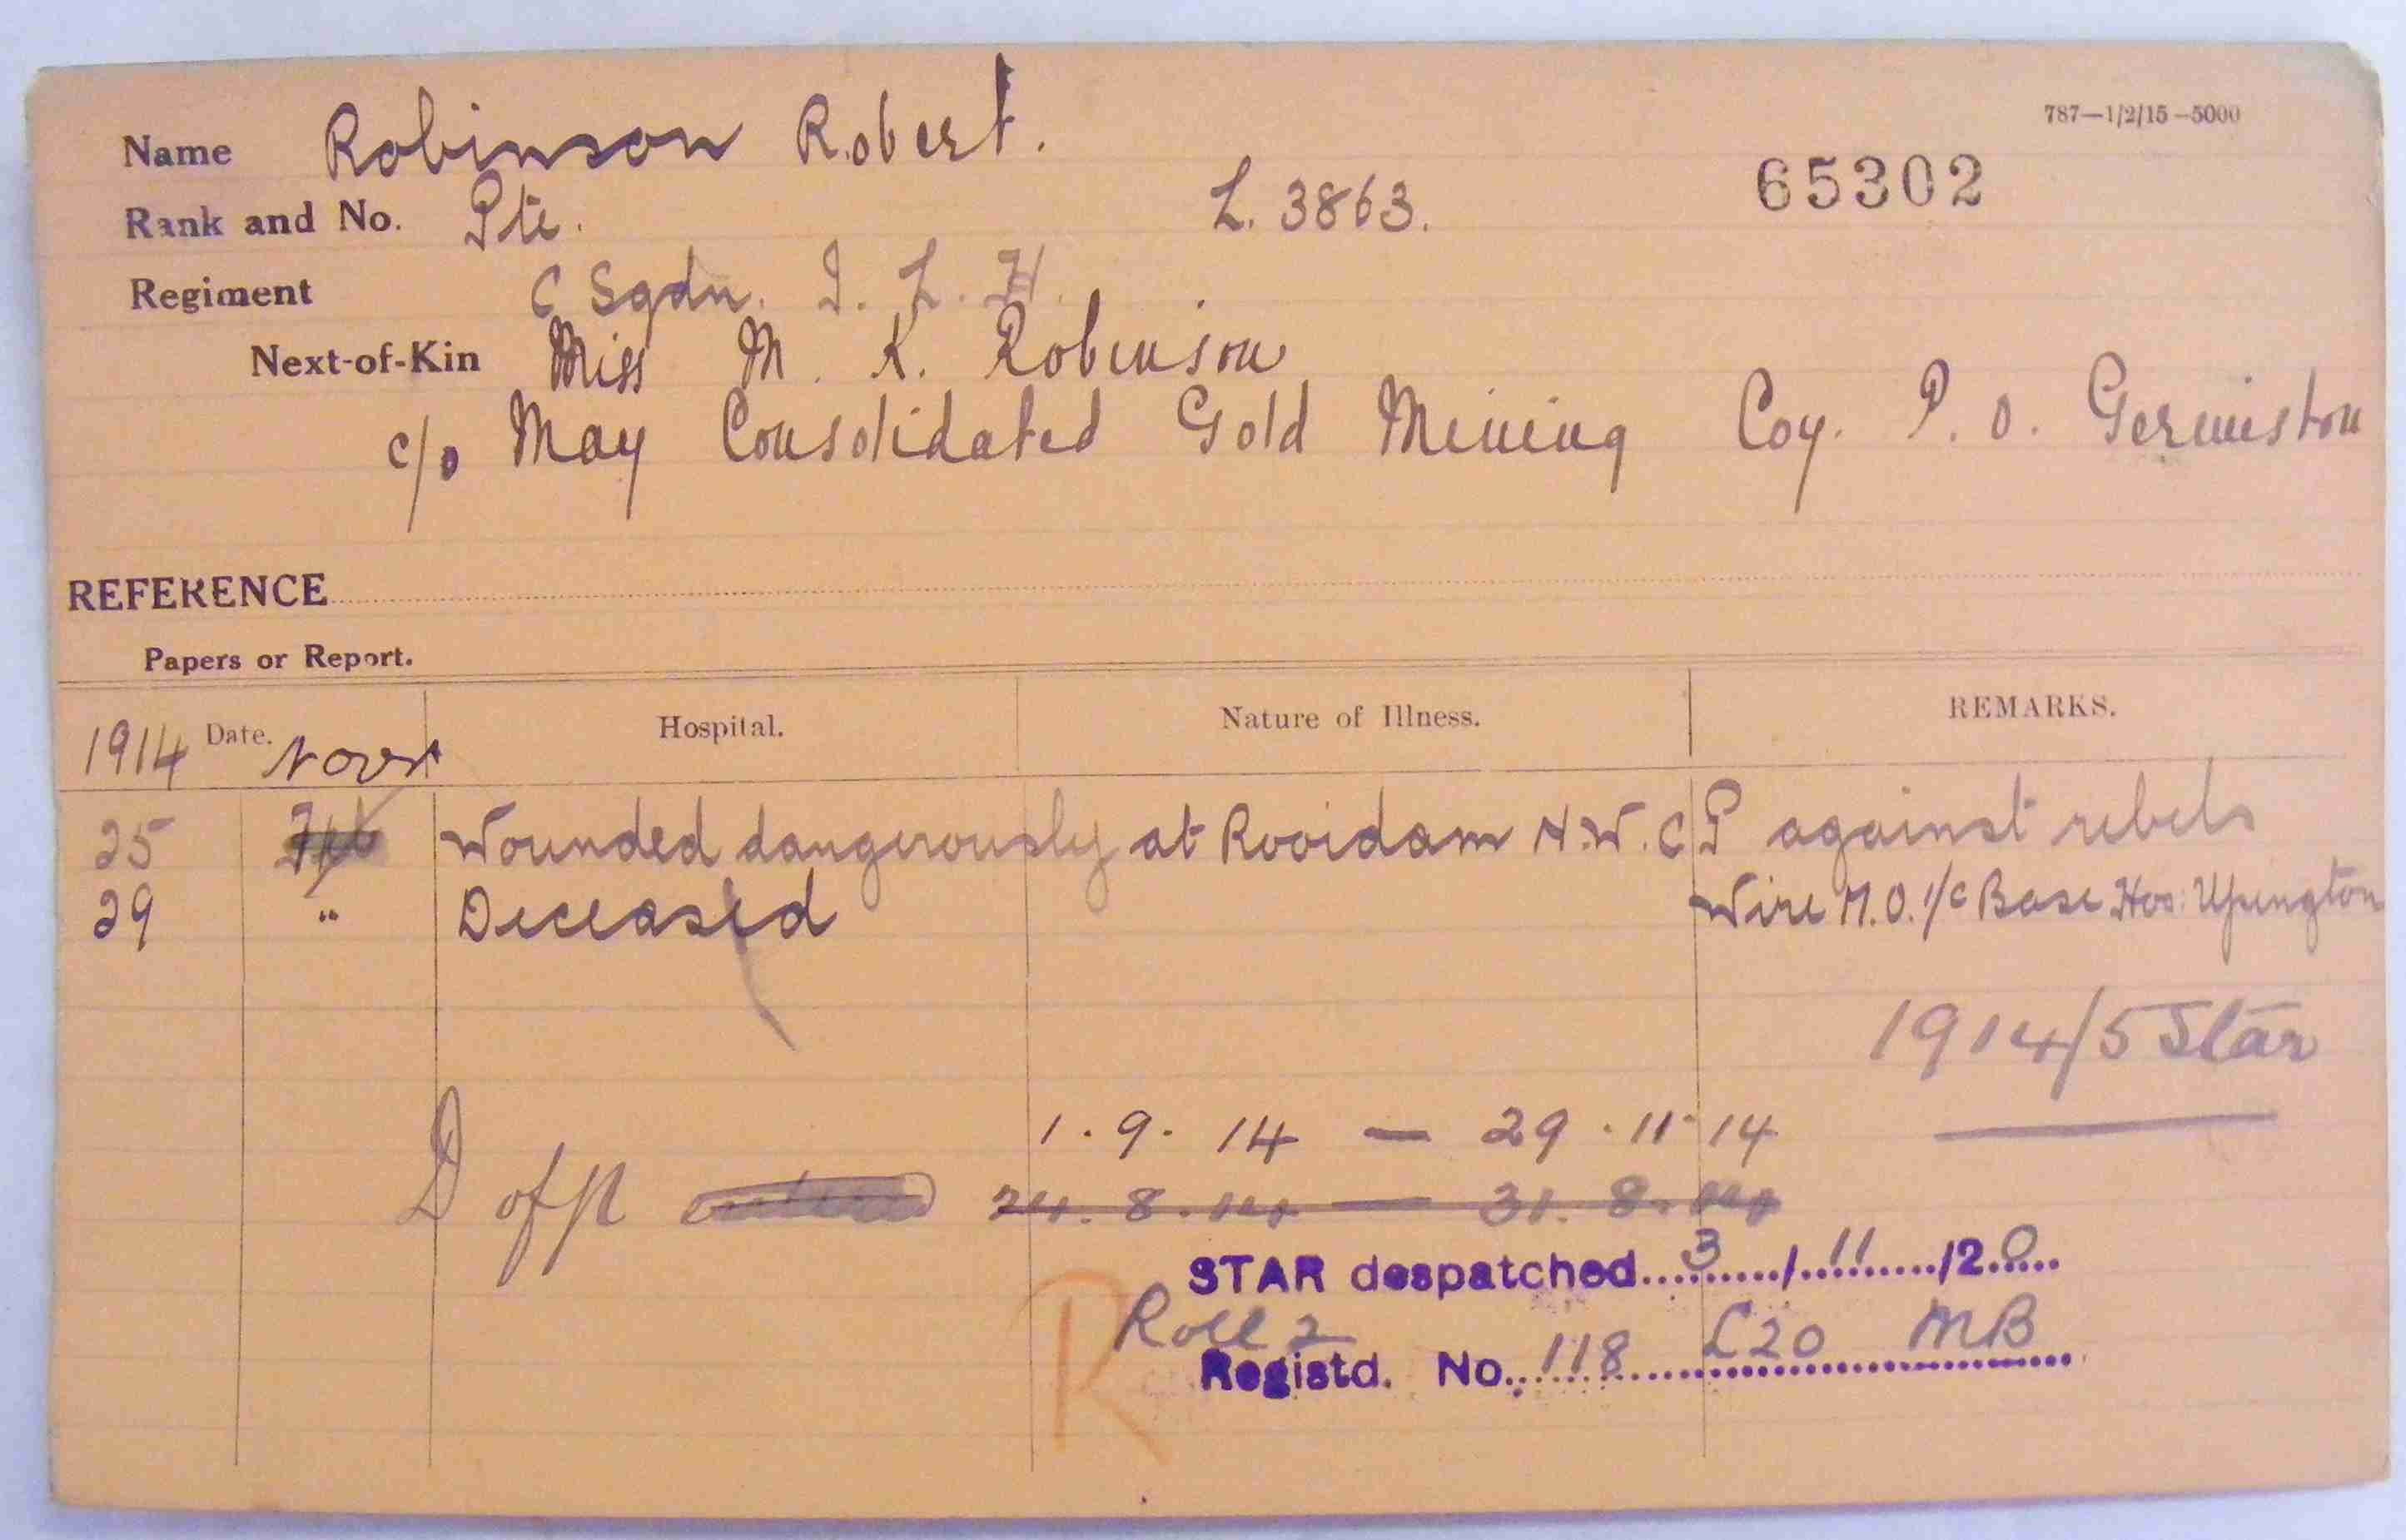 787—1/2/15—5000
Name Robinson Robert.
65302
Rank and No. Pte. L. 3863.
Regiment C Sqdn. I. L. H.
Next-of-Kin Miss M. K. Robinson
c/o May Consolidated Gold Mining Coy. P. O. Germiston
REFERENCE
Papers or Report.
1914 Date. Novr Hospital. Nature of Illness. REMARKS.
25 Wounded dangerously at Rooidam N.W.C.P against rebels
29 " Deceased Wire M.O. i/c Base Hos: Upington
1914/5 Star
1. 9. 14 — 29. 11. 14
D of 24. 8. — 31. 8.
STAR despatched 3/11/20
Roll 2
Registd. No. 118 £20 MB
R